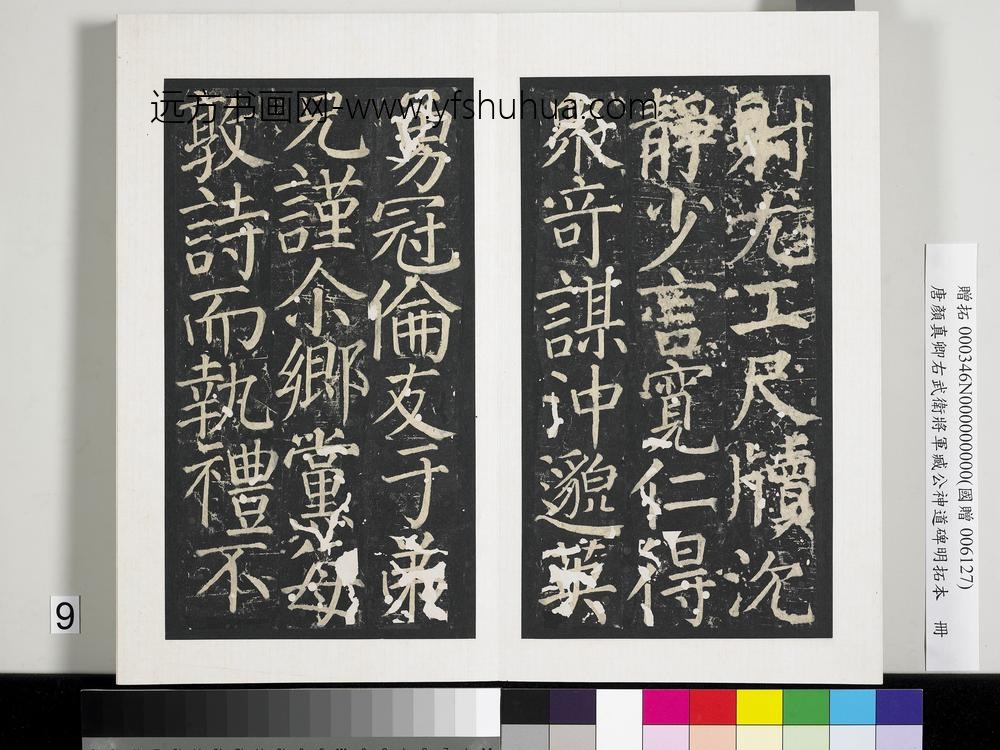 远方书画网-www.yfshuhua.com
射尤工尺牘沈
靜少言寬仁得
眾竒謀沖邈英
勇冠倫友于弟
兄謹余鄉黨每
敦詩而執禮不
贈拓 000346N000000000(國贈 006127)
唐顏真卿右武衛將軍臧公神道碑明拓本 冊
9